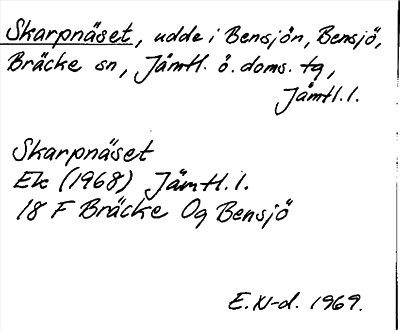 Skarpnäset, udde i Bensjön, Bensjö,
Bräcke sn, Jämtl. ö. doms. tg,
Jämtl. l.
Skarpnäset
Ek (1968) Jämtl. l.
18 F Bräcke Og Bensjö
E. N-d. 1969.